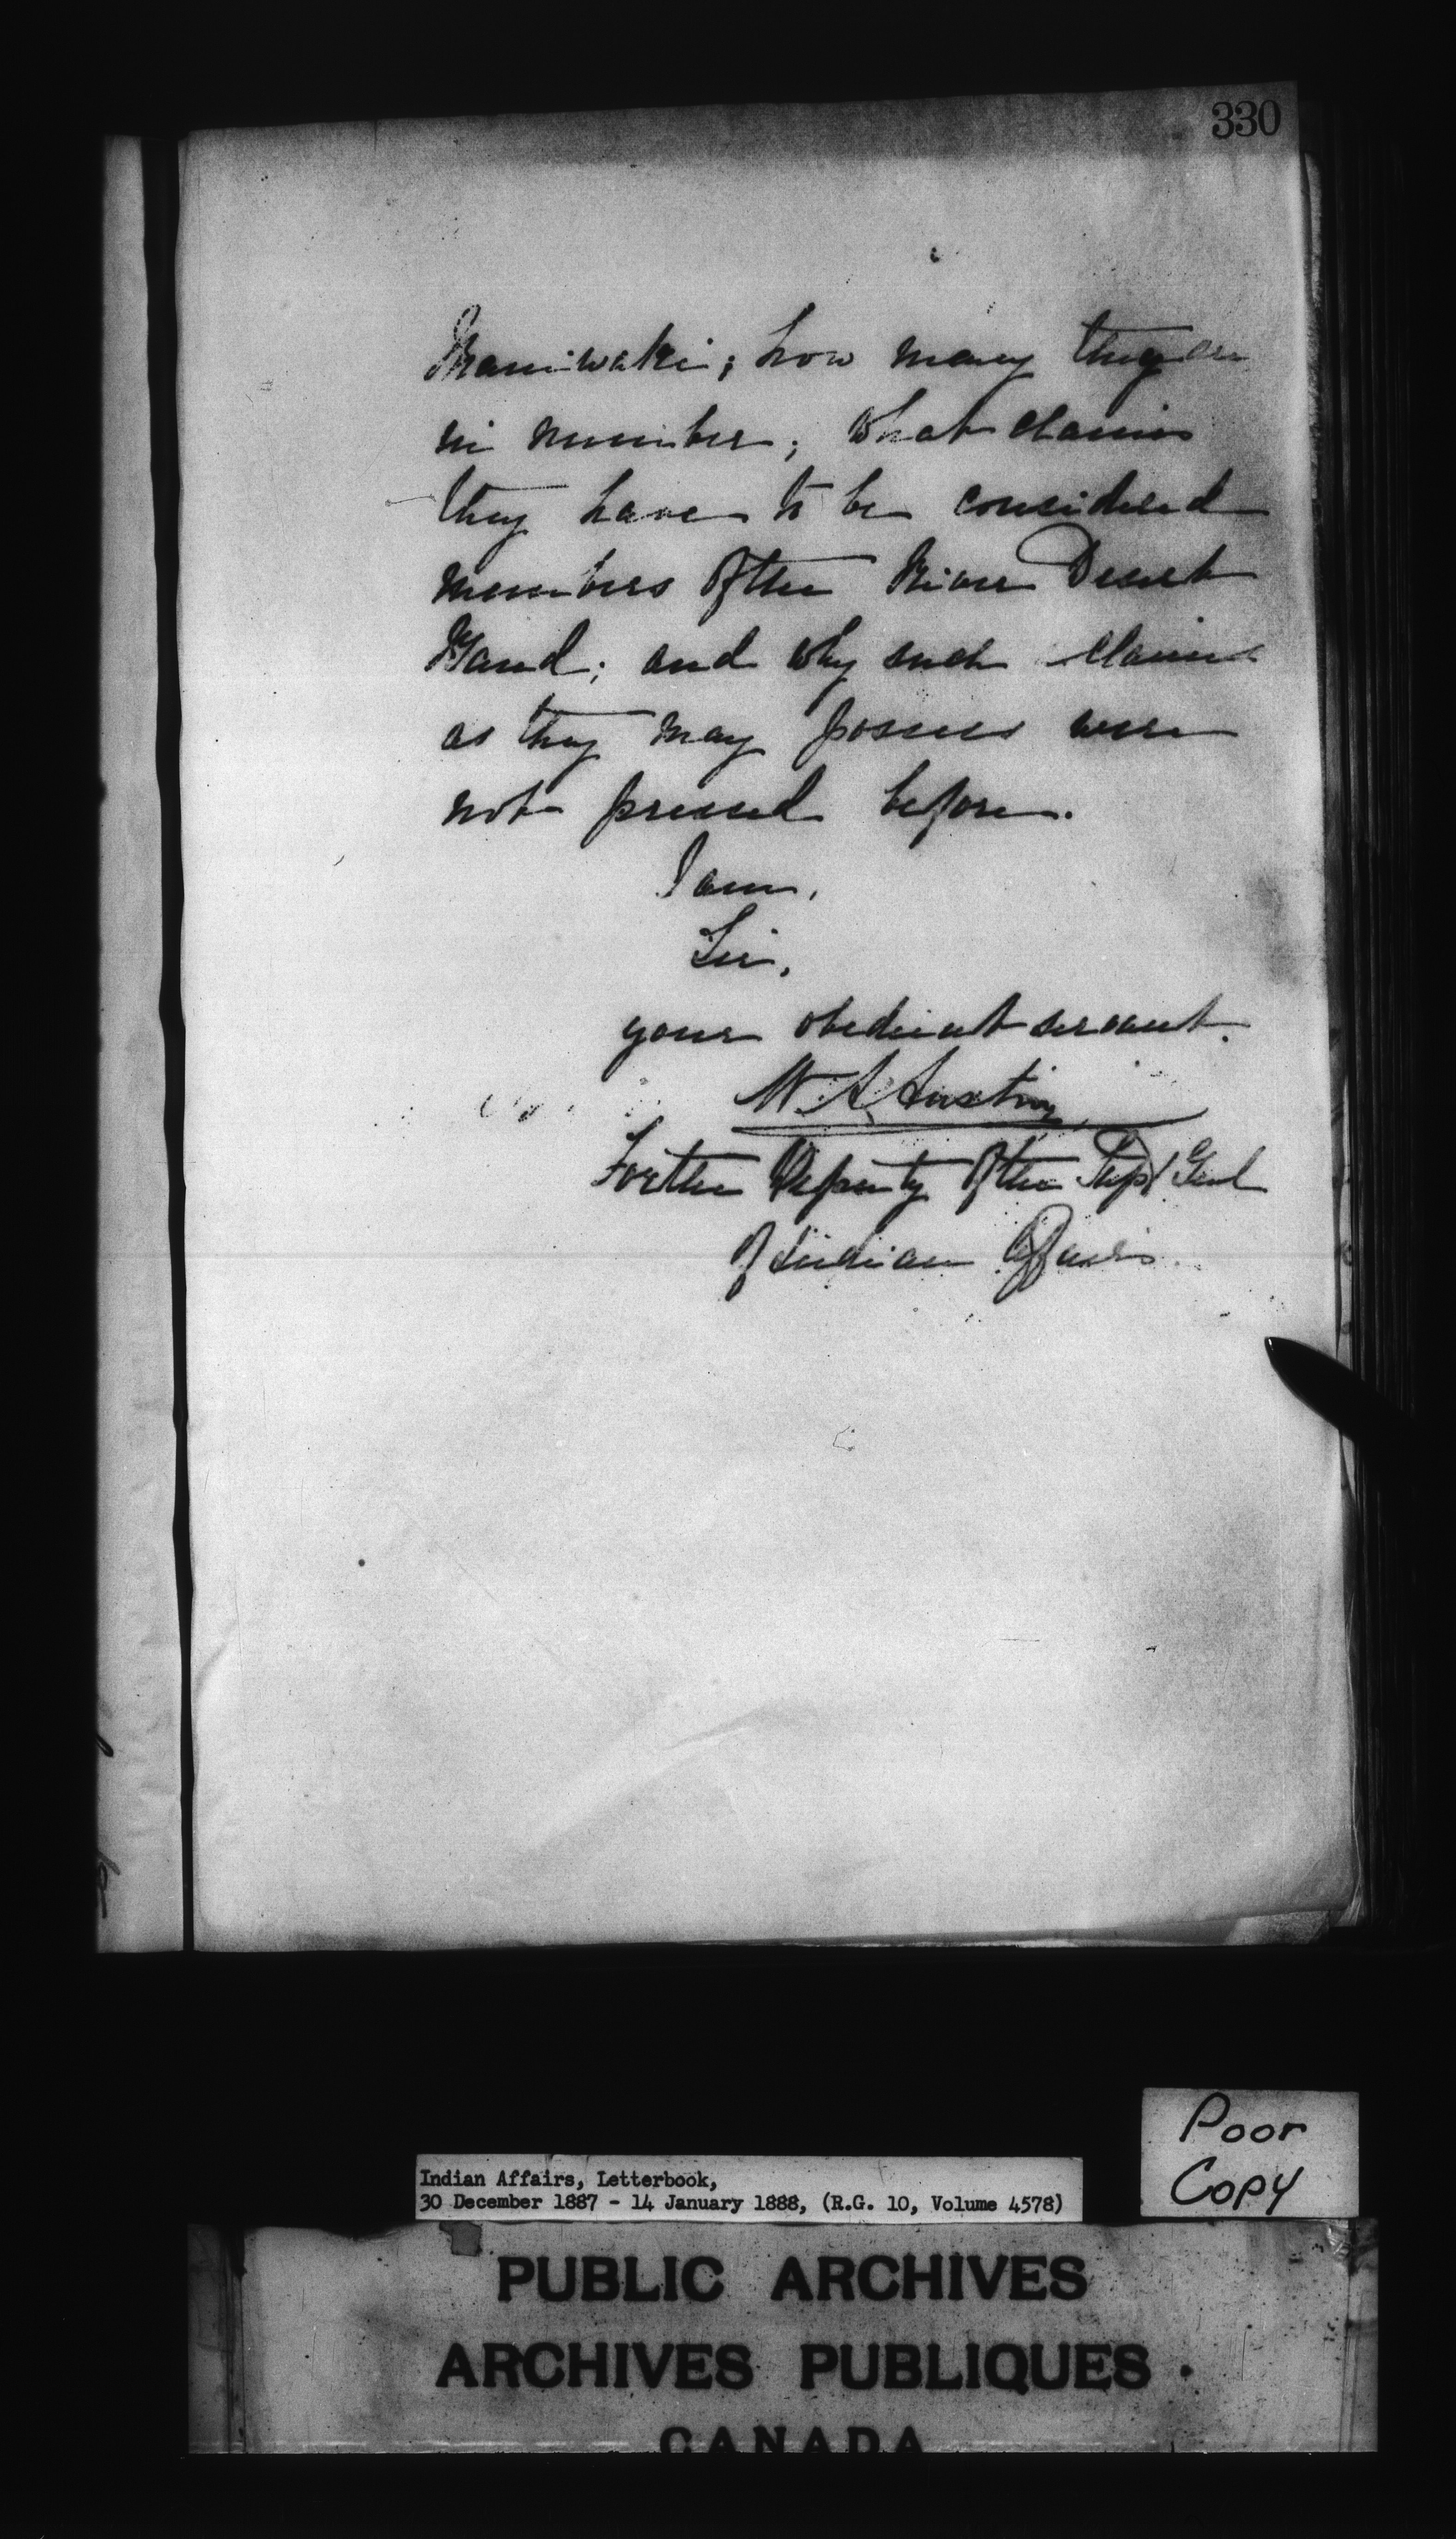 330
Maniwaki; how many they are
in number; what claims
they have to be considered
members of the River Desert
Band; and why such claims
as they may possess were
not pressed before.
I am,
Sir,
your obedient servant.
W. A. Austin
For the Deputy of the Supt Genl
of Indian Affairs.
Poor
Copy
Indian Affairs, Letterbook,
30 December 1887 - 14 January 1888, (R.G. 10, Volume 4578)
PUBLIC ARCHIVES
ARCHIVES PUBLIQUES
CANADA